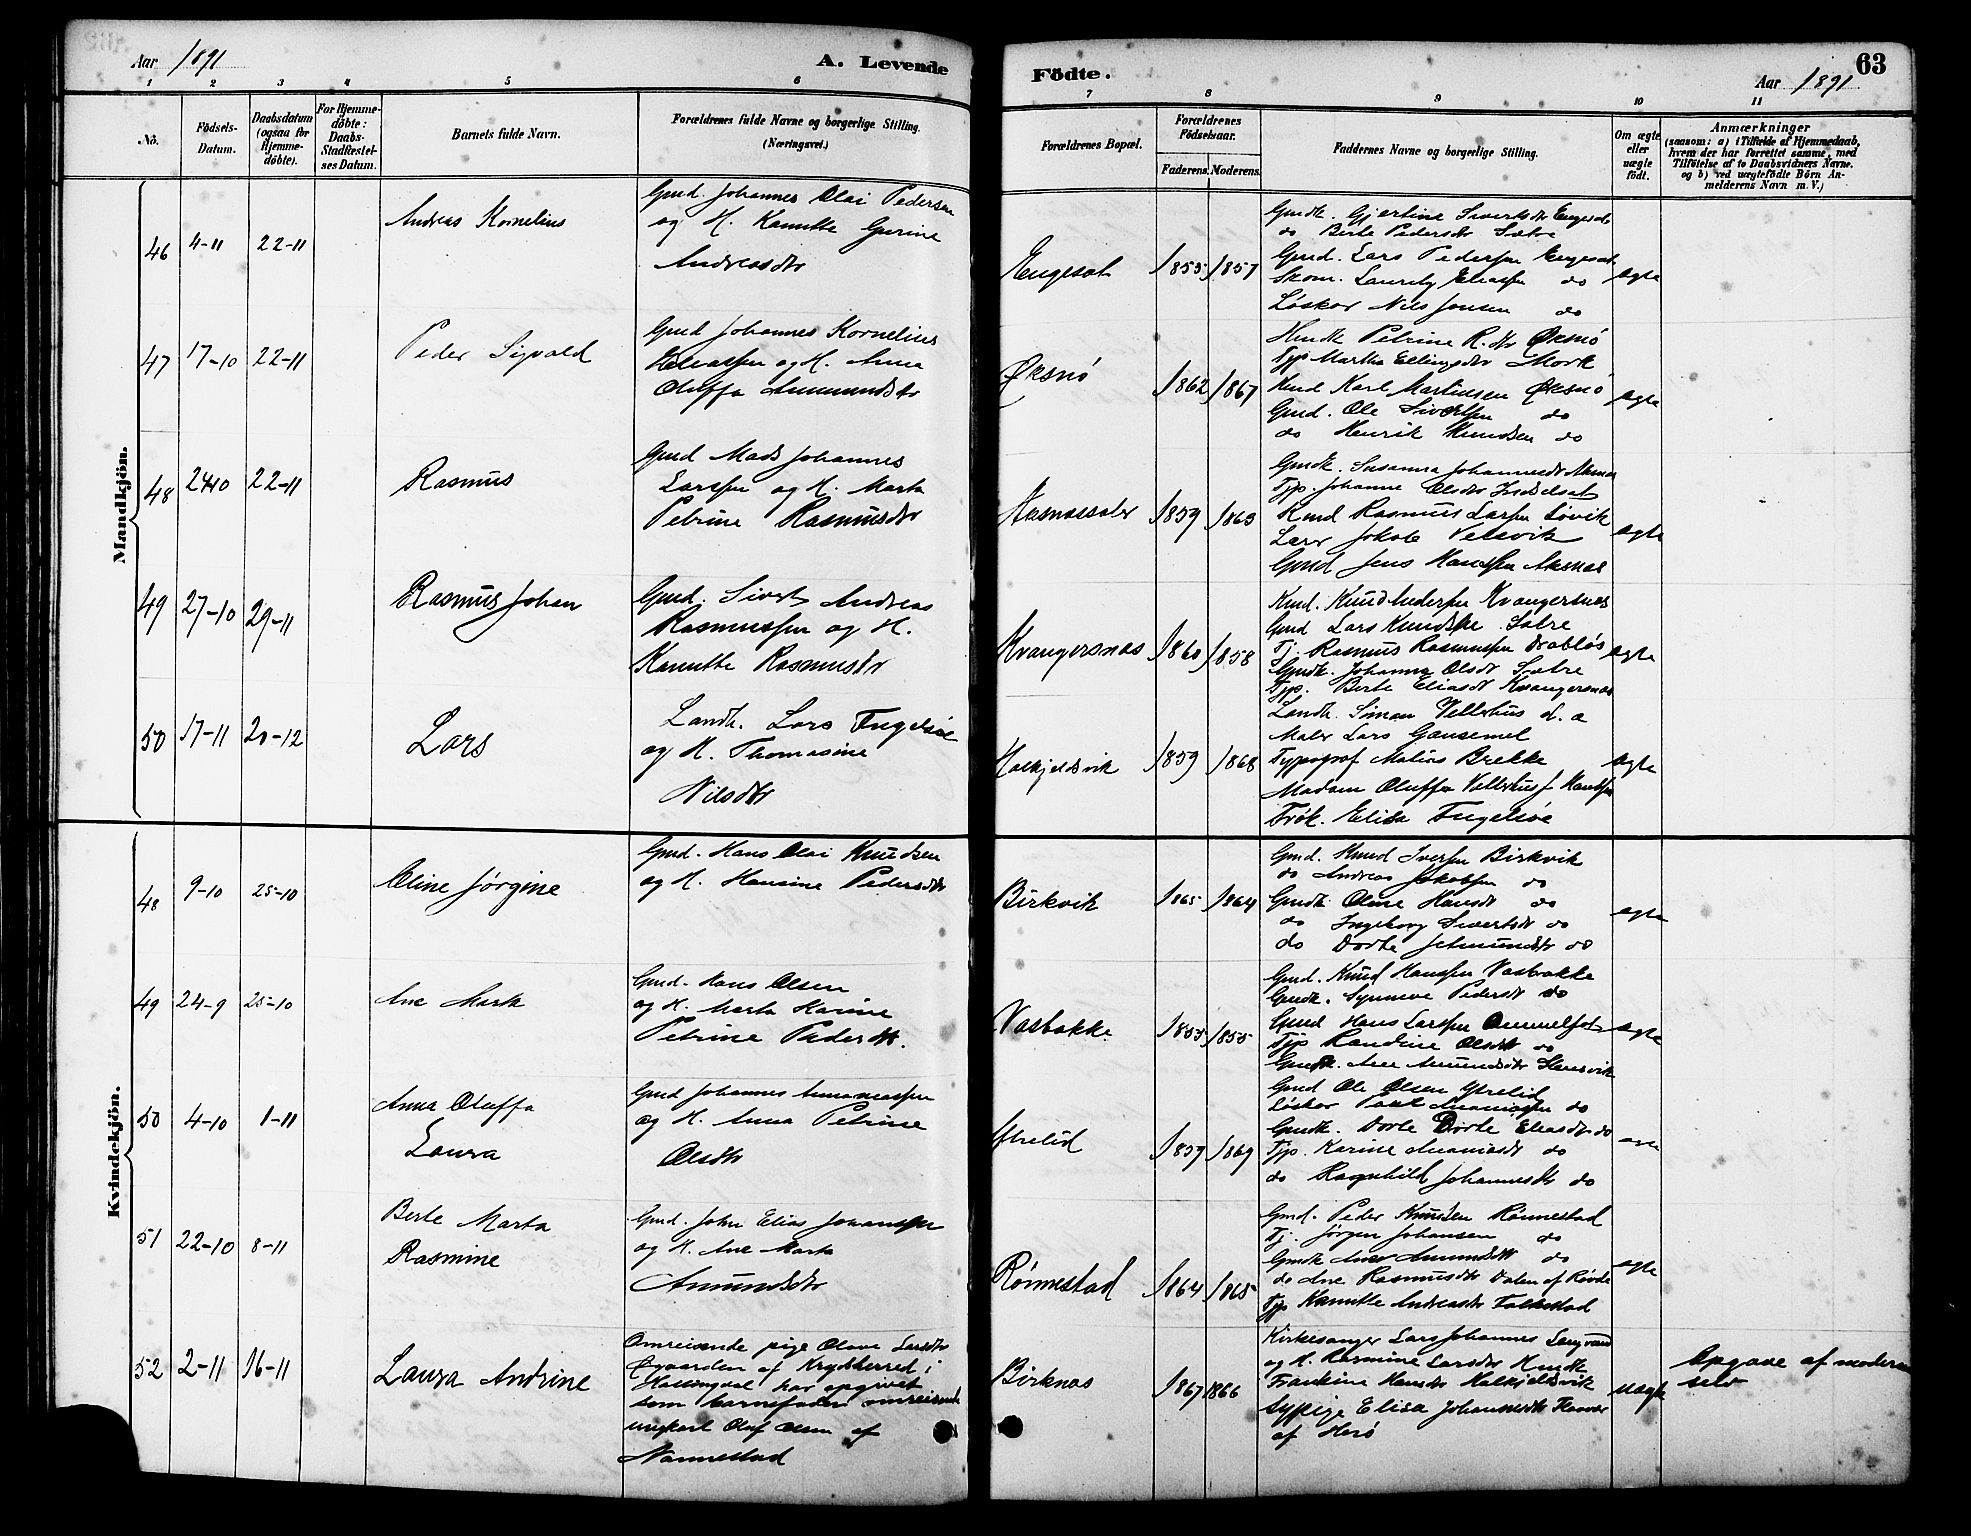 Aar 1891
A. Levende
Födte.
Aar 1891
63
1 2 3 4 5 6 7 8 9 10 11
No.
Födsels-
Datum.
Daabsdatum
(ogsaa for
Hjemme-
döbte).
For Hjemme-
döbte:
Daabs-
Stadfæstel-
ses Datum.
Barnets fulde Navn.
Forældrenes fulde Navne og borgerlige Stilling.
(Næringsvei.)
Forældrenes Bopæl.
Forældrenes
Födselsaar.
Faderens. Moderens.
Faddernes Navne og borgerlige Stilling.
Om ægte
eller
uægte
födt.
Anmærkninger
(saasom: a) i Tilfælde af Hjemmedaab,
hvem der har forrettet samme, med
Tilföielse af to Daabsvidners Navne.
og b) ved uægtefödte Börn An-
melderens Navn m. V.)
Mandkjön.
46 4-11 22-11
Andreas Kornelius
Gmd. Johannes Olai Pedersen
og H. Kanutte Gurine
Andreasdtr
Engeset 1855 1857
Gmdk. Gjertine Sivertsdtr Engeset
do Berte Pedersdtr Sætre
Gmd. Lars Pedersen Engeset
Løskar Nils Jonsen do
ægte
47 17-10 22-11
Peder Sigvald
Gmd Johannes Kornelius
og H. Anna
Oluffa Amundsdtr
Øksnø 1862 1867
Petrine R.dtr Øksnø
Tjp Martha Ellingsdtr Mork
Karl Martinsen Øksnø
Gmd. Ole Sivertsen do
do Henrik Knudsen do
ægte
48 24-10 22-11
Rasmus
Gmd Mads Johannes
Larssen og H. Marta
Petrine Rasmusdtr
1859 1863
Gmdk. Susanna Johannesdtr
Tjp. Johanne Olsdtr
Rasmus Larsen Løvik
Lærer Jakob Velsvik
Gmd Jens Hanssen Aksnes
ægte
49 27-10 29-11
Rasmus Johan
Gmd. Sivert Andreas
Rasmussen og H.
Kanutte Rasmusdtr
Kvangersnæs 1860 1858
Kvangersnæs
Gmd Lars Knudsen Sætre
Tj. Rasmus Rasmussen Drabløs
Gmdk. Johanna Olsdtr Sætre
Tjp. Berte Eliasdtr Kvangersnæs
ægte
50 17-11 20-12
Lars
Landh. Lars Engelsøe
og H. Thomasine
Nilsdtr
Halkjeldsvik 1859 1868
Landh. Simon Vellehus
Maler Lars Gausemel
Typograf Matias Brekke
Madam Oluffa Vellehus
Frøk. Elisa Engelsøe
ægte
Kvindekjön.
48 9-10 25-10
Oline Jørgine
Gmd. Hans Olai Knudsen
og H. Hansine Pedersdtr
Birkvik 1865 1864
Gmd. Knud Iversen Birkvik
do Andreas Jakobsen do
Gmdk. Oline Hansdtr do
do Ingeborg Sivertsdtr do
do Dorte do
ægte
49 24-9 25-10
Ane Marta
Gmd. Hans Olsen
og H. Marta Karine
Petrine Pedersdtr.
Vasbakke 1855 1855
Gmd. Knud Hanssen Vasbakke
Gmdk. Synneve Pedersdtr do
Gmd Hans Larssen
Tjp Randine Olsdtr do
Gmdk. Ane Amundsdtr
ægte
50 4-10 1-11
Anna Oluffa
Laura
Gmd Johannes Ananiassen
og H. Anna Petrine
Olsdtr
Ytrelid 1859 1869
Gmd Ole Olsen Ytrelid
Løskar Ananiassen do
Gmdk. Dorte Dorte Eliasdtr do
Tjp. Karine Ananiasdtr do
do Ragnhild Johannesdtr do
51 22-10 8-11
Berte Marta
Rasmine
Gmd. John Elias Johanssen
og H. Ane Marta
Amundsdtr
Rønnestad 1864 1865
Gmd. Peder Knudsen Rønnestad
Tj. Jørgen Johansen do
Gmdk Amundsdtr do
do Ane Rasmusdtr Dalen af Røvde
Tjp Kanutte Andreasdtr Folkestad
ægte
52 2-11 16-11
Laura Andrine
Omreisende pige Olave Larsdtr
Øgaarden af Krydsherred i
Hallingdal har opgivet
som barnefader omreisende
ungkarl Oluf Olsen af
Nannestad
Birknæs 1867 1866
Kirkesanger Lars Johannes
og H. Rasmine Larsdtr
Hansdtr Halkjeldsvik
Sypige Elisa Johannesdtr
af Herø
uægte
Opgave af moderen
selv